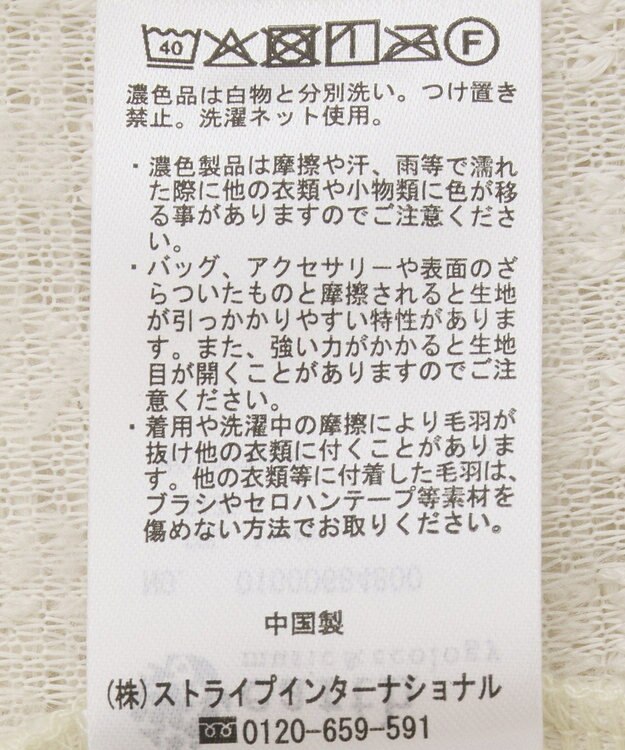 40 F
濃色品は白物と分別洗い。つけ置き
禁止。洗濯ネット使用。
・濃色製品は摩擦や汗、雨等で濡れ
た際に他の衣類や小物類に色が移
る事がありますのでご注意くださ
い。
・バッグ、アクセサリーや表面のざ
らついたものと摩擦されると生地
が引っかかりやすい特性がありま
す。また、強い力がかかると生地
目が開くことがありますのでご注
意ください。
・着用や洗濯中の摩擦により毛羽が
抜け他の衣類に付くことがありま
す。他の衣類等に付着した毛羽は、
ブラシやセロハンテープ等素材を
傷めない方法でお取りください。
中国製
(株)ストライプインターナショナル
0120-659-591